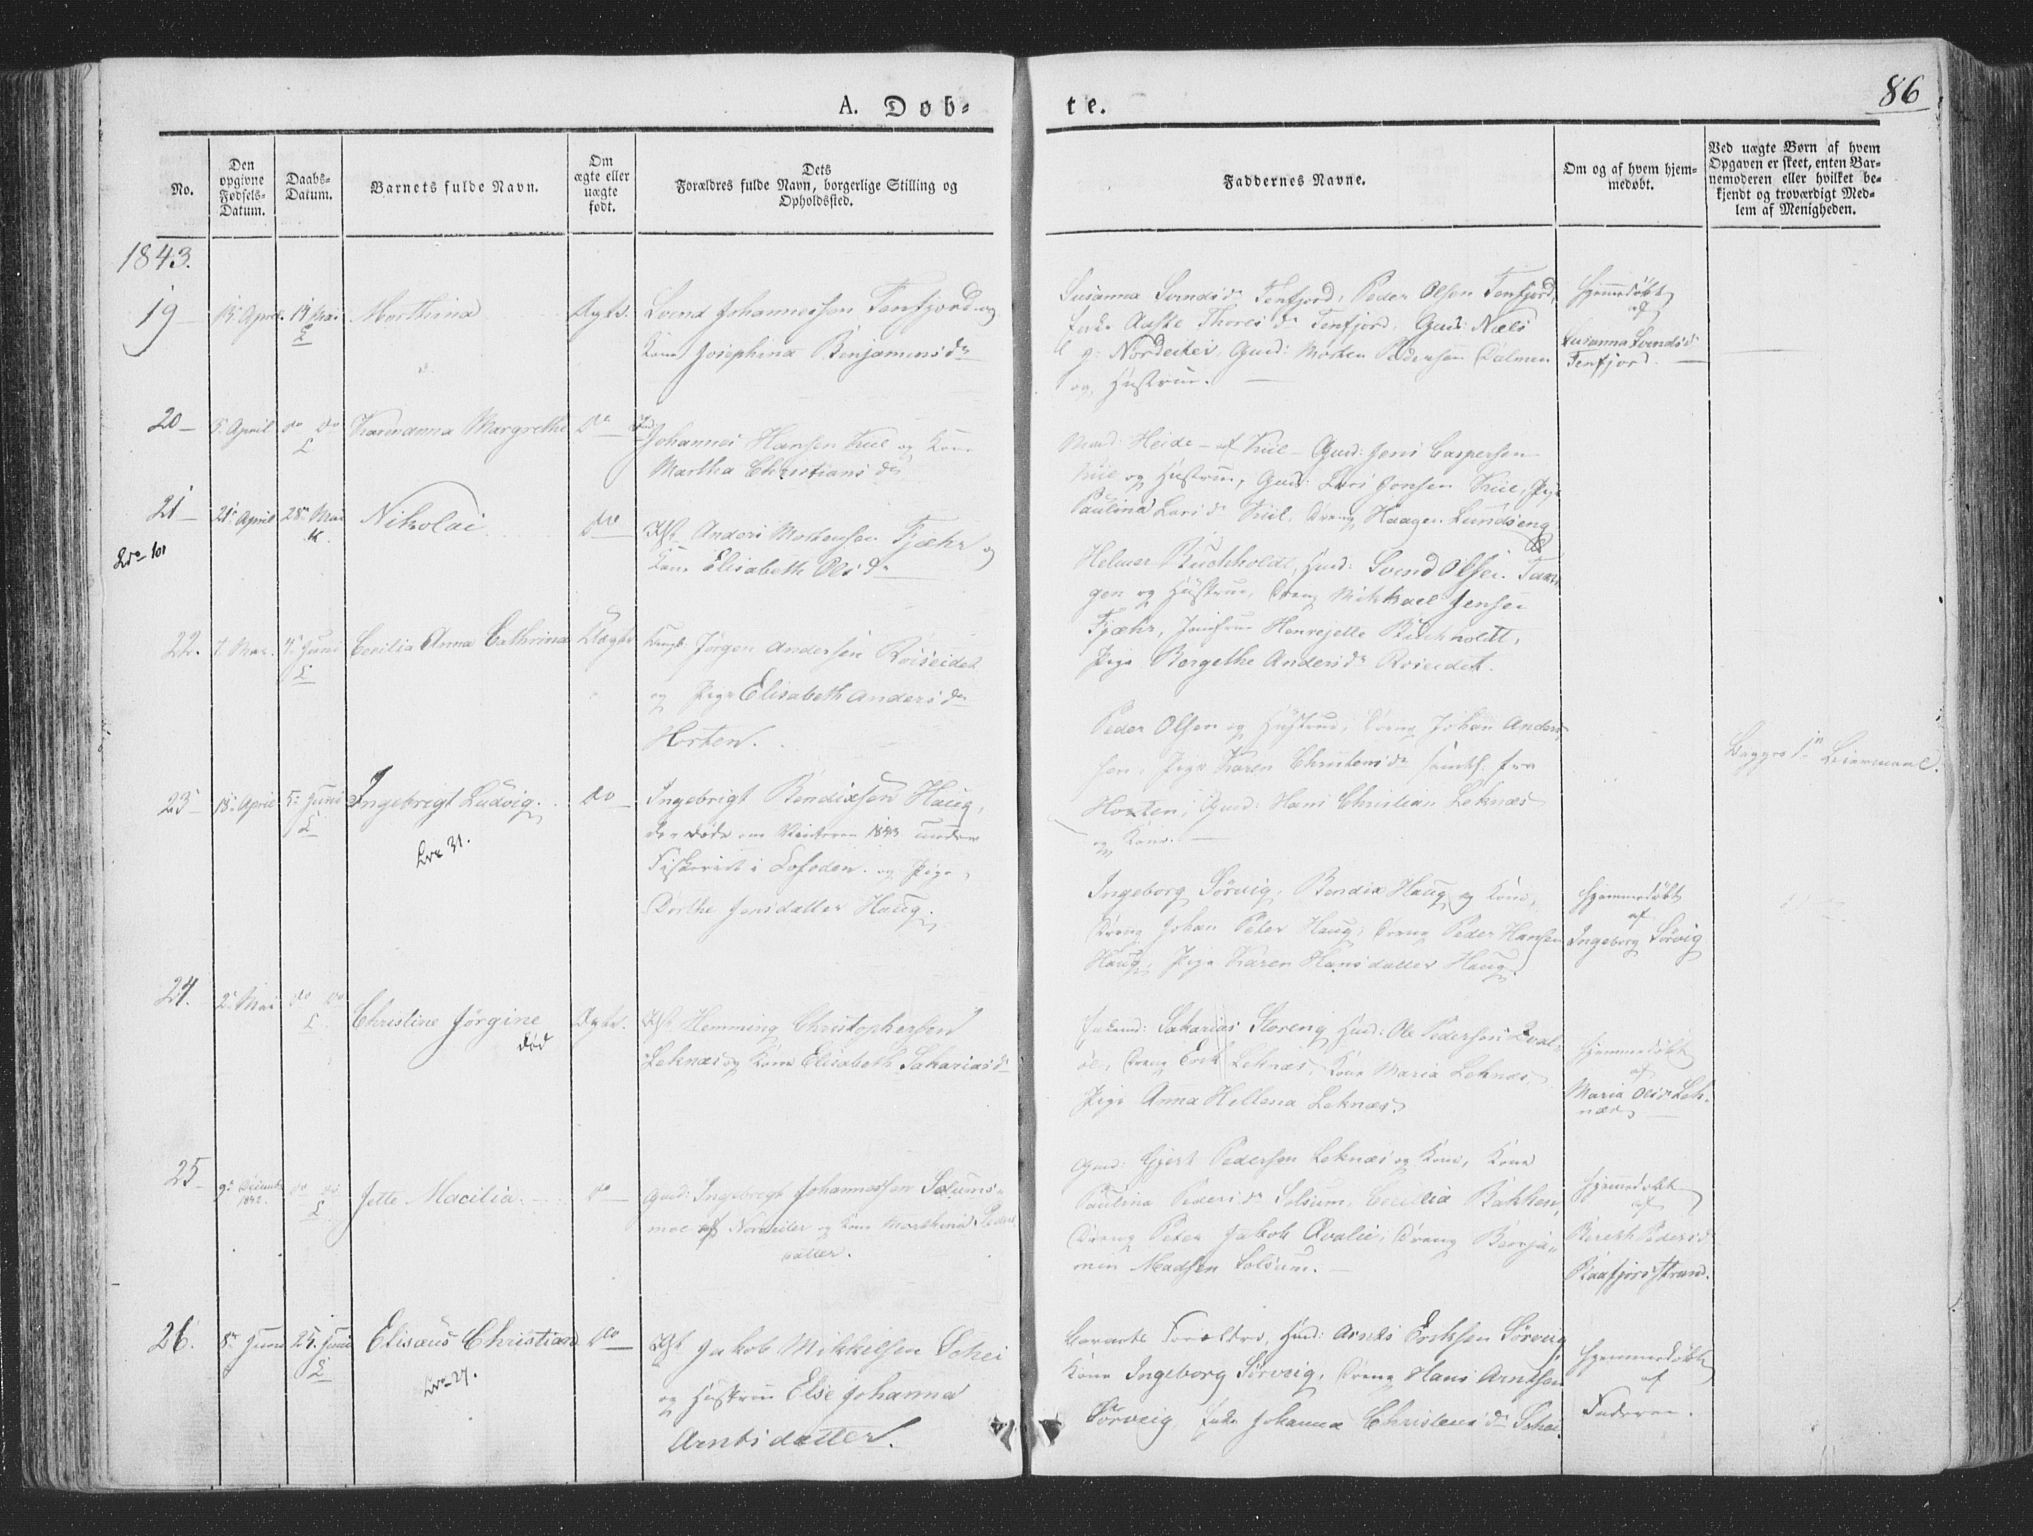 86
A. Døb-
te.
No.
Den opgivne Fødsels-Datum.
Daabs-Datum.
Barnets fulde Navn.
Om ægte eller uægte født.
Dets Forældres fulde Navn, borgerlige Stilling og Opholdssted.
Faddernes Navne.
Om og af hvem hjem-
medøbt.
Ved uægte Børn af hvem
Opgaven er skeet, enten Bar-
nemoderen eller hvilket be-
kjendt og troværdigt Med-
lem af Menigheden.
1843.
19
April 14 Mai
Marthina
Ægte.
Svend Johannessen Tenfjord og
Kone Josephina Benjaminsdr
Susanna Svendsdr Tenfjord, Peder Olsen Tenfjord,
Enke Thoresdr Tenfjord, Gmd: Niels
Nordeitet, Gmd: Morten Pedersen Dalmen
og Hustrue.
Hjemmedøbt
af
Susanna Svendsdr
Tenfjord.
20
5 April do do
L
Karenanna Margrethe
do
Johannes Hansen og Kone
Martha Christiansdr
Gmd: Jens Caspersen
og Hustrue, Gmd: Lars Jensen
Paulina Larsdr Dreng Haagen Lundseng
21
21 April 28 Mai
K.
Lvn 101
Nikolai
do
Anders Mortensen Fjæhr og
Kone Elisabeth Olsdr
Helmer Buchholdt, Hmd: Svend Olsen
og Hustrue, Dreng Mikkael Jensen
Fjæhr, Jomfrue Henrejette Buchholdt,
Pige Bergethe Andersdr Røiseidet.
22.
7 Mai. 5 Juni
L
Cecilia Anna Cathrina
Uægte
Jørgen Andersen Røiseidet
og Pige Elisabeth Andersdr
Horten.
Peder Olsen og Hustrue, Dreng Johan Anders
sen, Pige Karen Christensdr samtl. fra
Horten, Gmd: Hans Christian Leknæs
og Kone.
Begges 1te Leiermaal.
23
18 April 5 Juni
L
Ingebrigt Ludvig.
Lvn 31.
do
Ingebrigt Bendixsen Haug,
der døde om Vinteren 1843 under
Fiskeriet i Lofoden. og Pige
Dorthe Jensdatter Haug.
Ingeborg Sørvig, Bendix Haug og Kone,
Dreng Johan Peter Haug, Dreng Peder Hansen
Haug, Pige Karen Hansdatter Haug.
Hjemmedøbt
af
Ingeborg Sørvig
24.
2 Mai do do
L
Christine Jørgine
død
Ægte.
Hemming Christophersen
Leknæs og Kone Elisabeth Sakariasdr
Sakarias Storeng, Hmd: Ole Pedersen
Dreng Erik Leknæs, Kone Maria Leknæs,
Pige Anna Hellena Leknæs.
Hjemmedøbt
af
Maria Olsdr Lek-
næs
25
9 Decemb. do do
1842.
L
Jette Macilia.
do
Gmd: Ingebrigt Johannessen Solums-
moe af og Kone Marthina Peders
datter.
Gmd: Gjert Pedersen Leknæs og Kone, Kone
Paulina Pedersdr Solsum, Cecilia Bakken,
Dreng Peter Jakob Dreng Benja-
min Madsen Solsum.
Hjemmedøbt
af
Bereth Pedersdr
26.
8 Juni 25 Juni
L
Elisæus Christian
Lvn 27.
do
Jakob Mikkelsen Schei
og Hustrue Else Johanna
Arntsdatter.
Barnets Forældre, Hmd: Arnts Eriksen Sørvig
Kone Ingeborg Sørvig, Dreng Hans Arntsen
Sørveig, Enke Johanna Christensdr Schei.
Hjemmedøbt
af
Faderen.